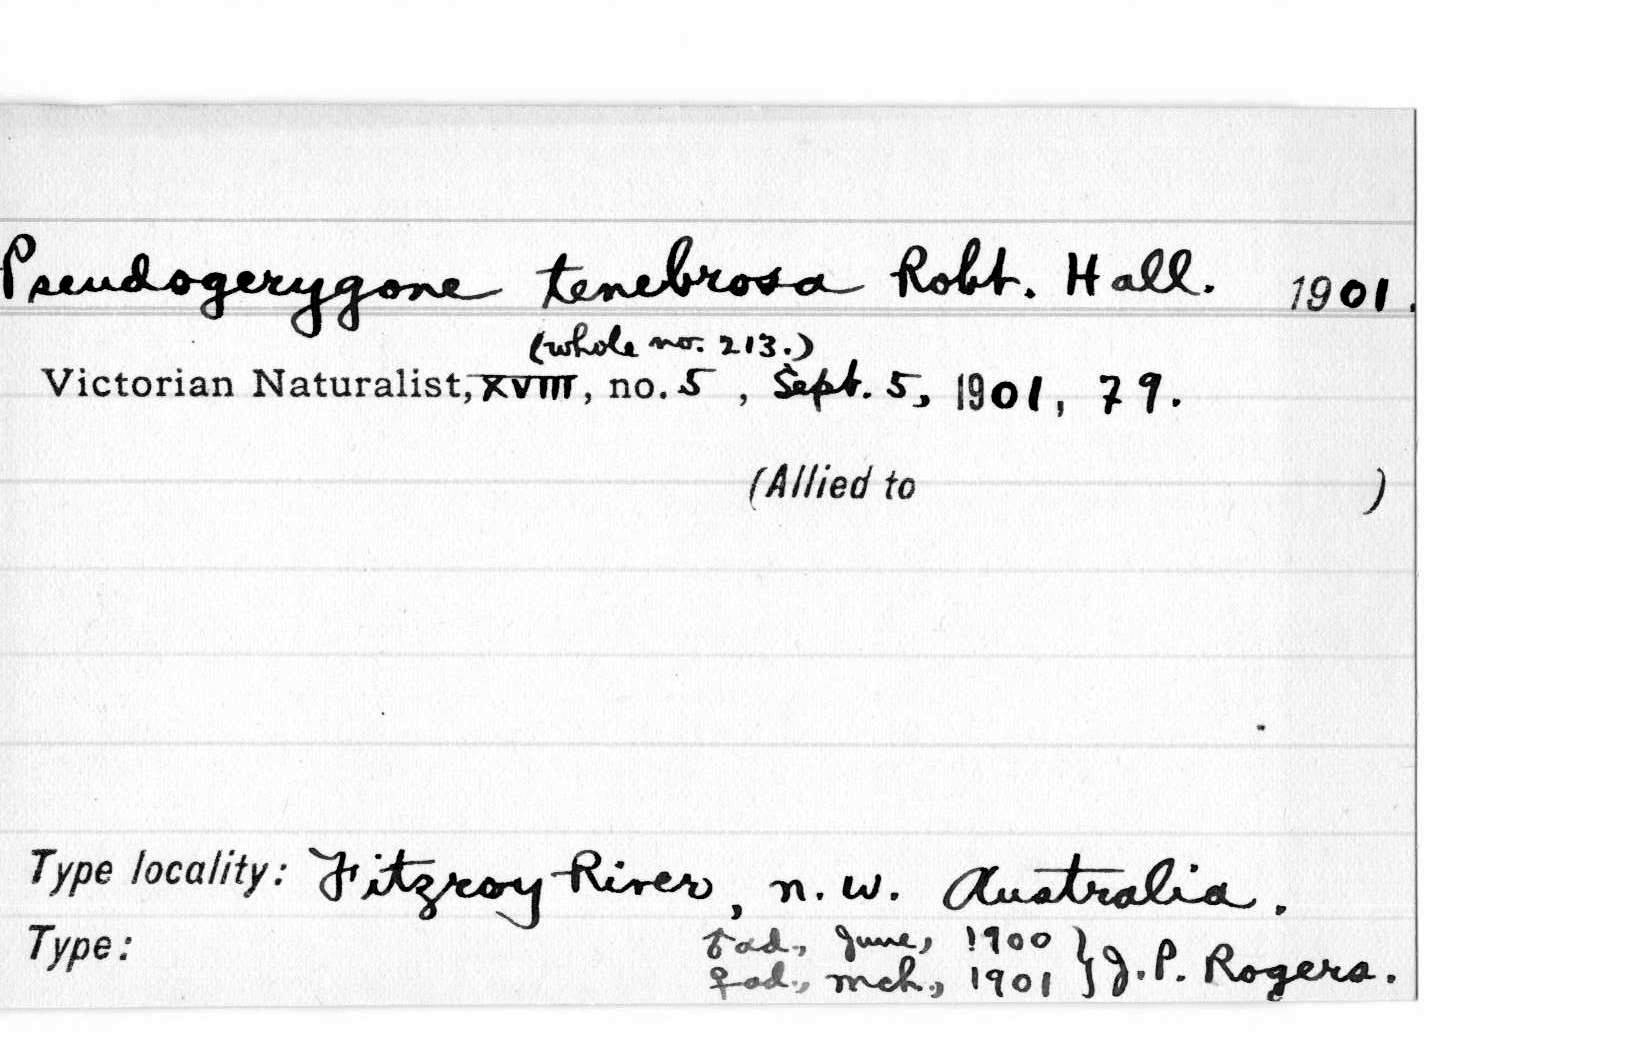 Pseudogerygone tenebrosa Robt. Hall. 1901.
(whole no. 213.)
Victorian Naturalist, XVIII, no. 5, Sept. 5, 1901, 79.
(Allied to )
Type locality: Fitzroy River, n.w. Australia.
Type: ♂ad., June, 1900
♀ad., Mch., 1901 } J. P. Rogers.